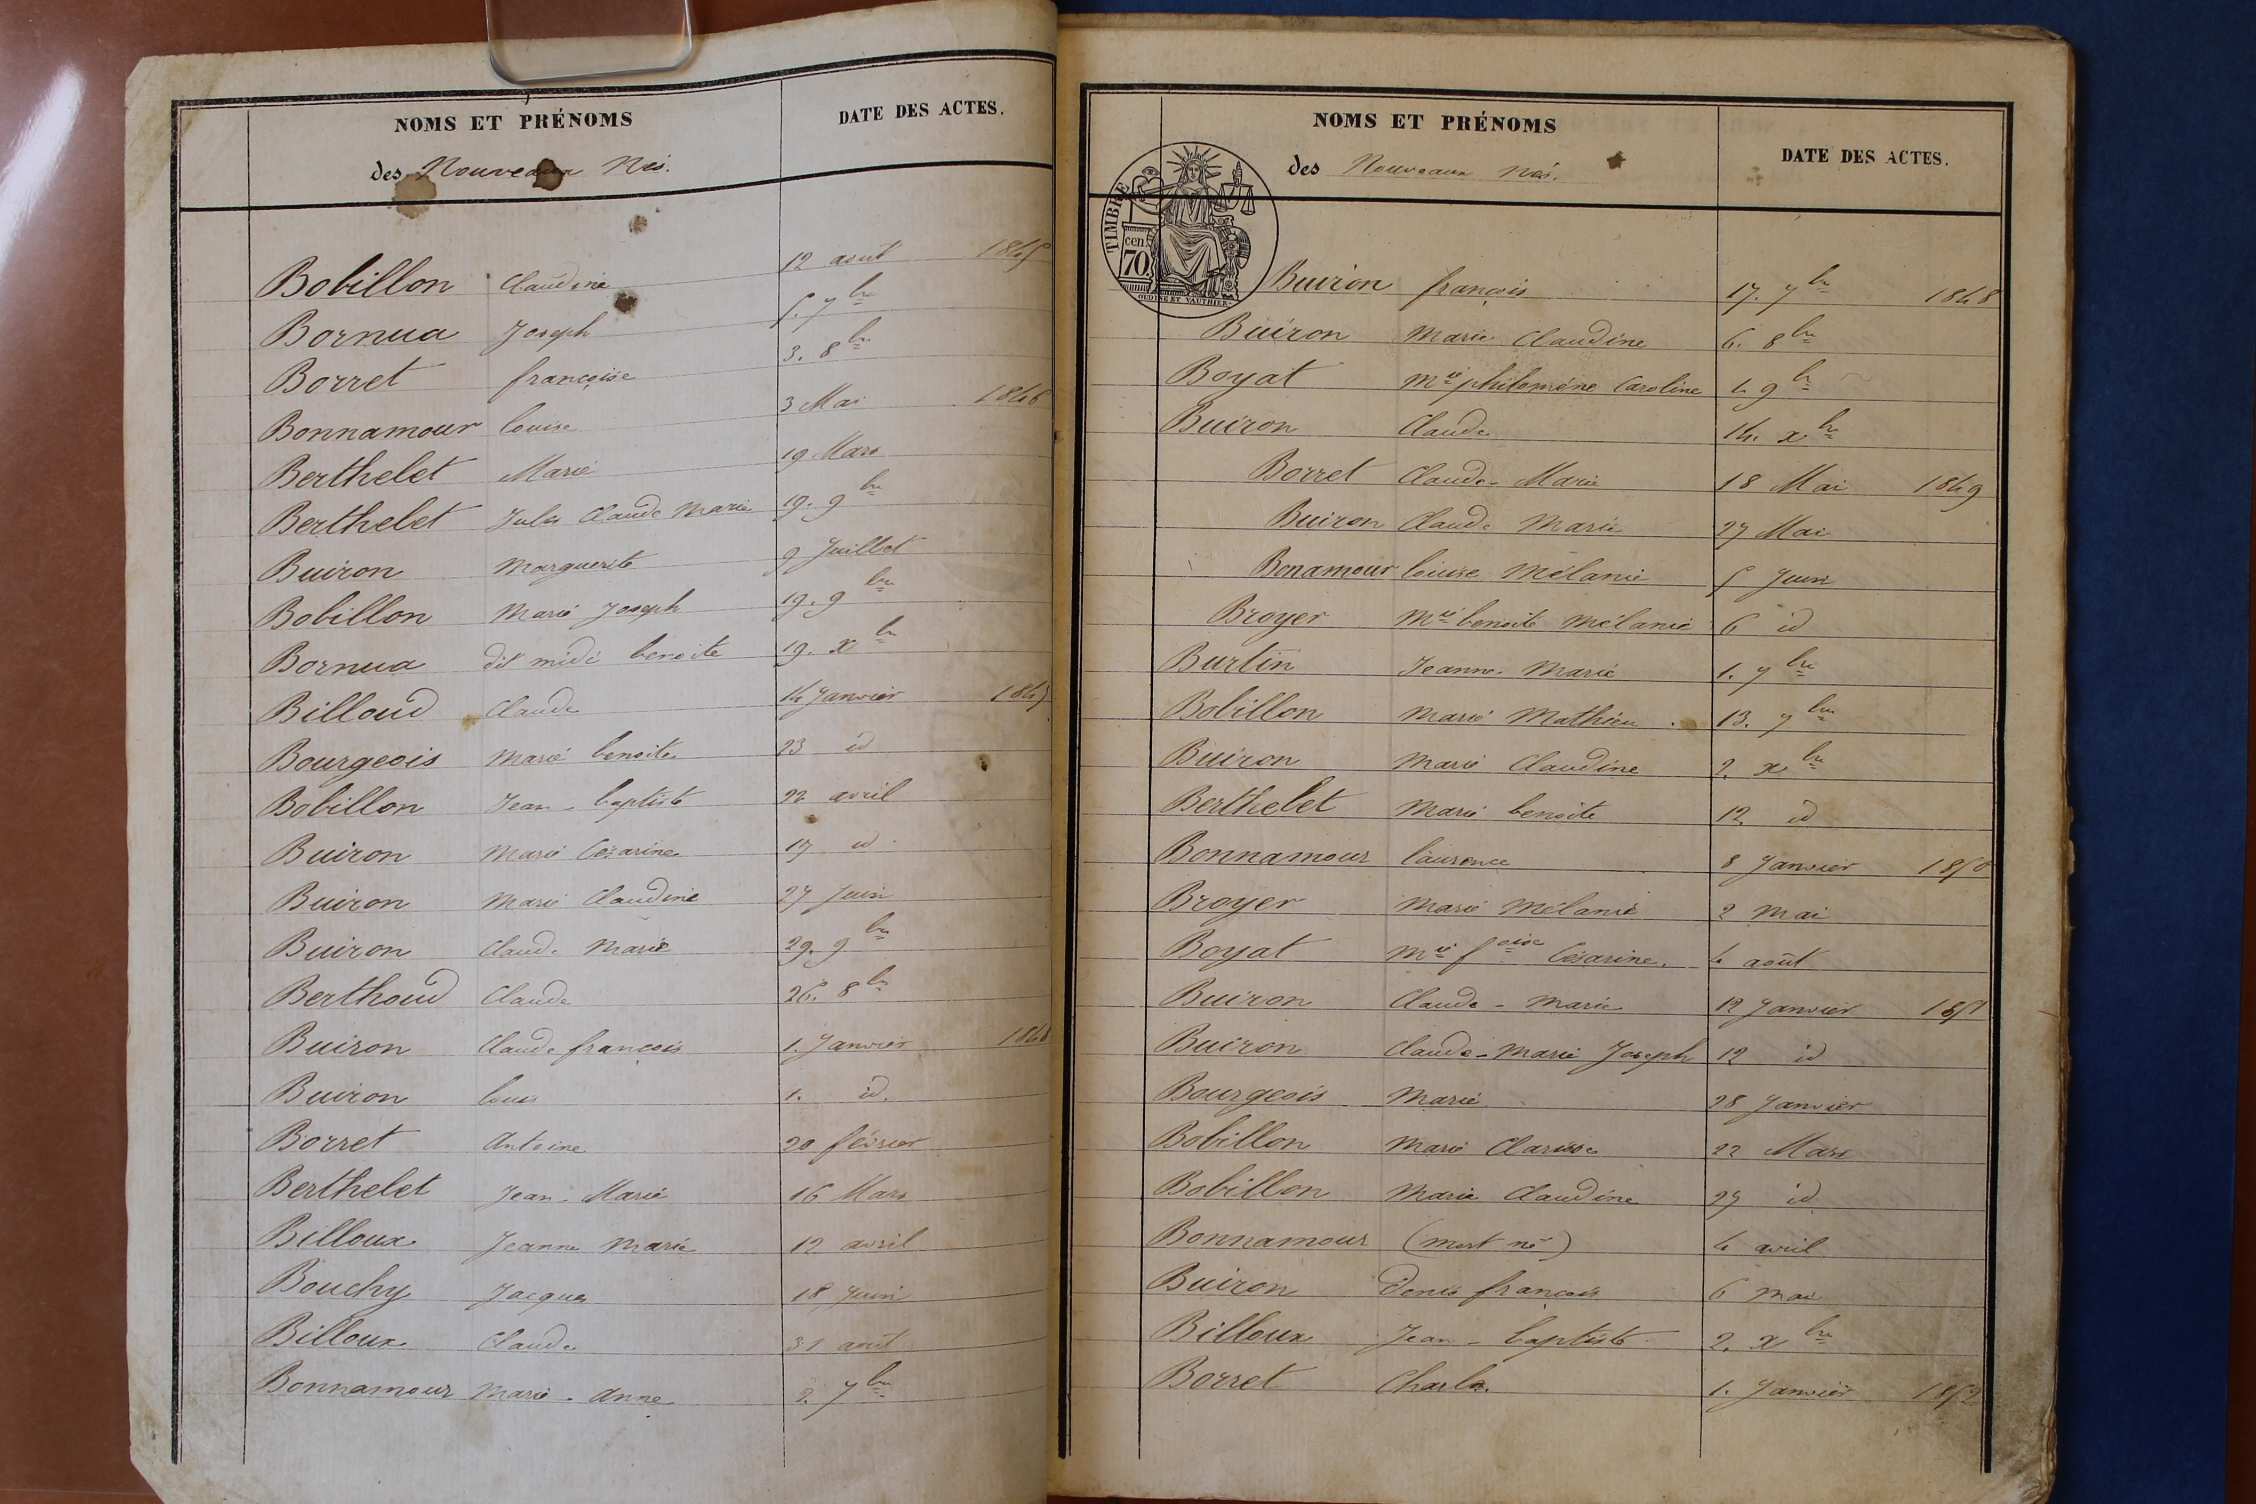 NOMS ET PRÉNOMS DATE DES ACTES.
des Nouveaux Nés.
Bobillon Claudine 12 aout 1845
Bornua Joseph 5. 7bre
Borret françoise 3. 8bre
Bonnamour louise 3 Mai 1846
Berthelet Marie 19 Mars
Berthelet Jules Claude Marie 19. 9bre
Buiron Marguerite 9 Juillet
Bobillon Marie Joseph 19. 9bre
Bornua dit midi benoite 19. xbre
Billoud Claude 14 Janvier 1847
Bourgeois Marie benoite 23 id
Bobillon Jean-baptiste 22 avril
Buiron Marie Césarine 17 id
Buiron Marie Claudine 27 Juin
Buiron Claude Marie 29. 9bre
Berthoud Claude 26. 8bre
Buiron Claude françois 1. Janvier 1848
Buiron louis 1. id.
Borret Antoine 20 février
Berthelet Jean-Marie 16 Mars
Billoux Jeanne Marie 12 avril
Bouchy Jacques 18 Juin
Billoux Claude 31 août
Bonnamour Marie-Anne 2. 7bre
NOMS ET PRÉNOMS DATE DES ACTES.
des Nouveaux Nés.
TIMBRE
70 cen.
OUDINÉ ET VAUTHIER
Buiron françois 17. 7bre 1848
Buiron Marie Claudine 6. 8bre
Boyat Mie philomène Caroline 4 9bre
Buiron Claude 14. xbre
Borret Claude-Marie 18 Mai 1849
Buiron Claude Marie 27 Mai
Bonamour louise Mélanie 5 Juin
Broyer Mie benoite Mélanie 6 id
Burtin Jeanne-Marie 1. 7bre
Bobillon Marie Mathieu 13. 7bre
Buiron Marie Claudine 2. xbre
Berthelet Marie benoite 12 id
Bonnamour laurence 8 Janvier 1850
Broyer Marie Mélanie 2 mai
Boyat Mie foise Césarine. 4 août
Buiron Claude-Marie 12 Janvier 1851
Buiron Claude-Marie Joseph 12 id
Bourgeois Marie 28 Janvier
Bobillon Marie Clarisse 22 Mars
Bobillon Marie Claudine 27 id
Bonnamour (mort né) 4 avril
Buiron Denis françois 6 mai
Billoux Jean-baptiste 2. xbre
Borret Charles. 1. Janvier 1852